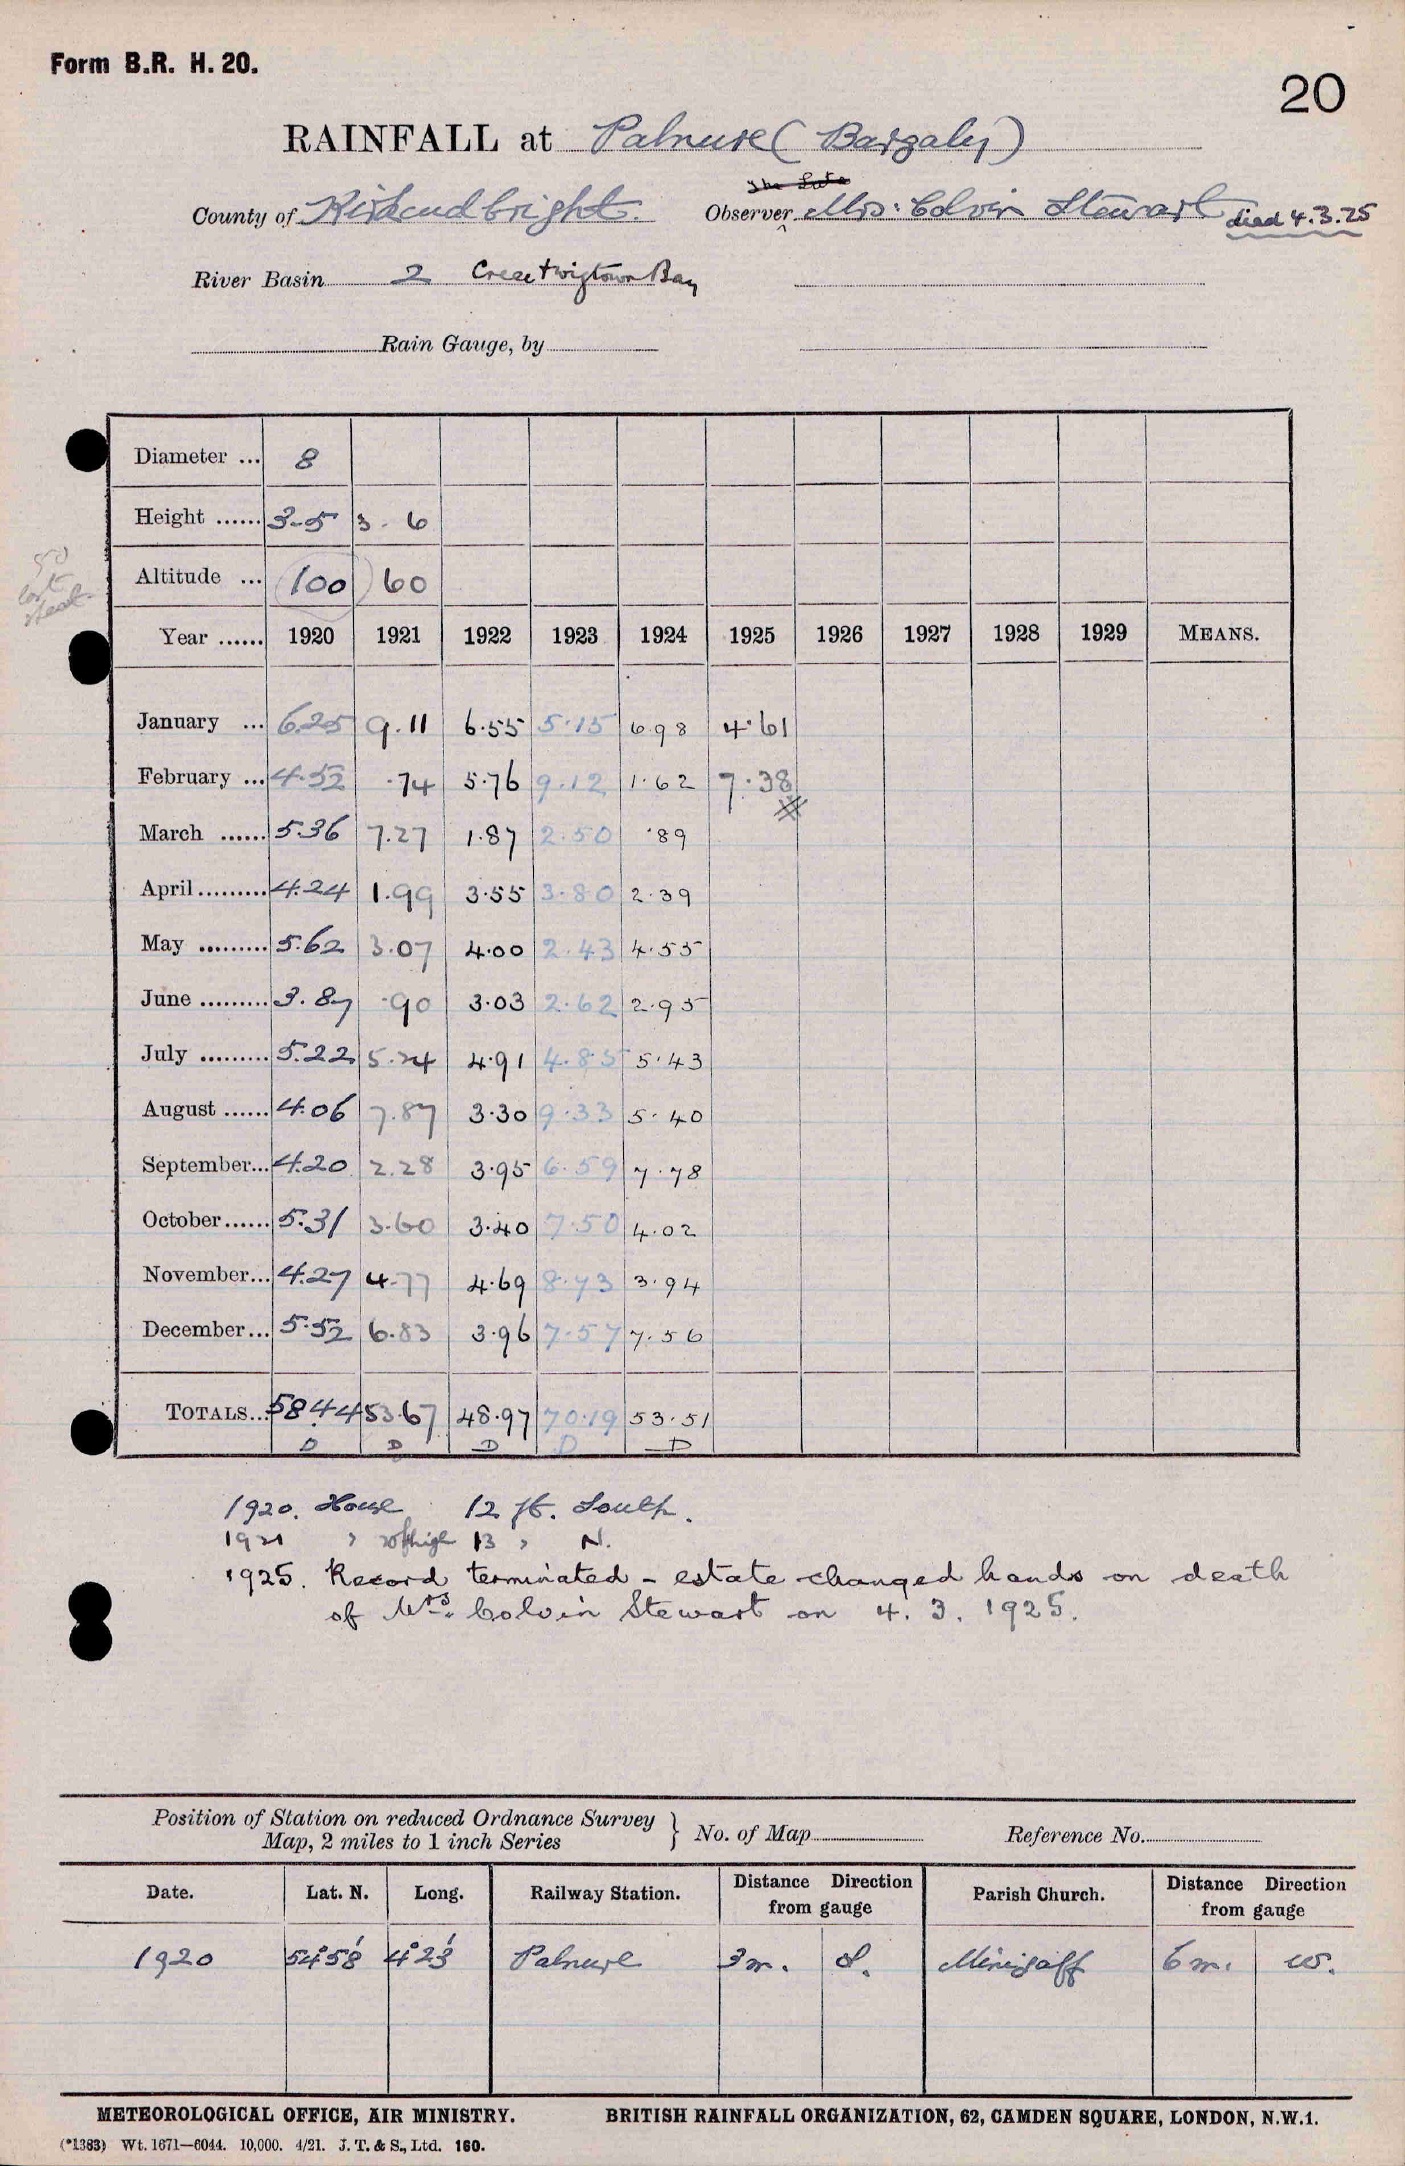 Form B.R. H. 20.
20
RAINFALL at Palnure (Bargaly)
The Late
County of Kirkcudbright. Observer Mrs. Colvin Stewart died 4.3.25
River Basin 2 Cree & Wigtown Bay
Rain Gauge, by
Diameter ... 8
Height ...... 3-5 3-6
Altitude ... 100 60
50
Year ...... 1920 1921 1922 1923 1924 1925 1926 1927 1928 1929 MEANS.
January ... 6.25 9.11 6.55 5.15 6.98 4.61
February ... 4.52 .74 5.76 9.12 1.62 7.38
March ...... 5.36 7.27 1.87 2.50 .89
April......... 4.24 1.99 3.55 3.80 2.39
May ......... 5.62 3.07 4.00 2.43 4.55
June ......... 3.87 .90 3.03 2.62 2.95
July ......... 5.22 5.24 4.91 4.85 5.43
August ...... 4.06 7.87 3.30 9.33 5.40
September... 4.20 2.28 3.95 6.59 7.78
October...... 5.31 3.60 3.40 7.50 4.02
November... 4.27 4.77 4.69 8.73 3.94
December... 5.52 6.83 3.96 7.57 7.56
TOTALS... 58.44 53.67 48.97 70.19 53.51
D D D D D
1920. House 12 ft. South.
1921 " high 13 " N.
1925. Record terminated - estate changed hands on death
of Mrs. Colvin Stewart on 4. 3. 1925.
Position of Station on reduced Ordnance Survey
Map, 2 miles to 1 inch Series } No. of Map Reference No.
Date. Lat. N. Long. Railway Station. Distance Direction from gauge Parish Church. Distance Direction from gauge
1920 54°58' 4°23' Palnure 3 m. S. Minigaff 6 m. W.
METEOROLOGICAL OFFICE, AIR MINISTRY. BRITISH RAINFALL ORGANIZATION, 62, CAMDEN SQUARE, LONDON, N.W.1.
(*1383) Wt. 1671—6044. 10,000. 4/21. J. T. & S., Ltd. 160.